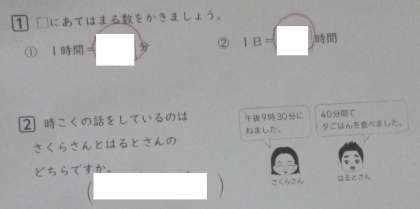 1 □にあてはまる数をかきましょう。
① 1時間= 分 ② 1日= 時間
2 時こくの話をしているのは
さくらさんとはるとさんの
どちらですか。
( )
午後9時30分に
ねました。
40分間で
夕ごはんを食べました。
さくらさん はるとさん